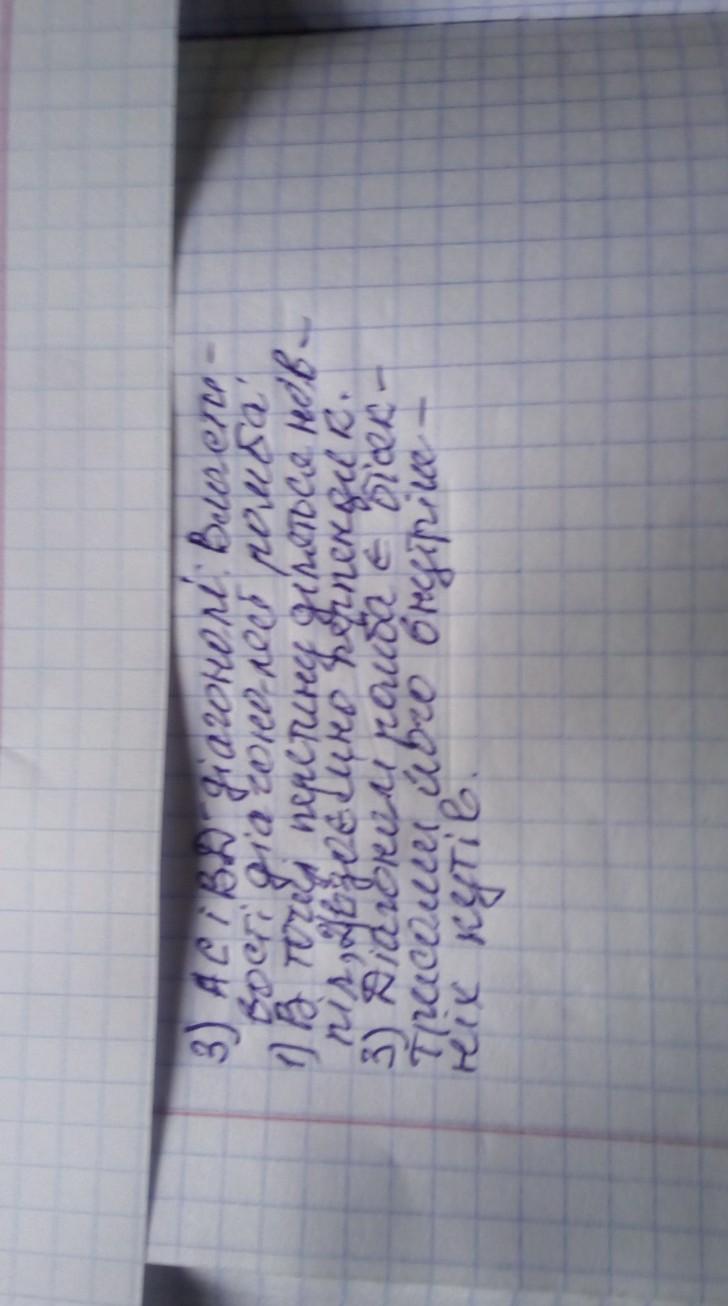 3) АС і ВД діагоналі. Власти-
вості діагоналей ромба:
1) В точці перетину діляться нав-
піл, 2) взаємно перпендик.
3) Діагоналі ромба є бісек-
трисами його внутріш-
ніх кутів.